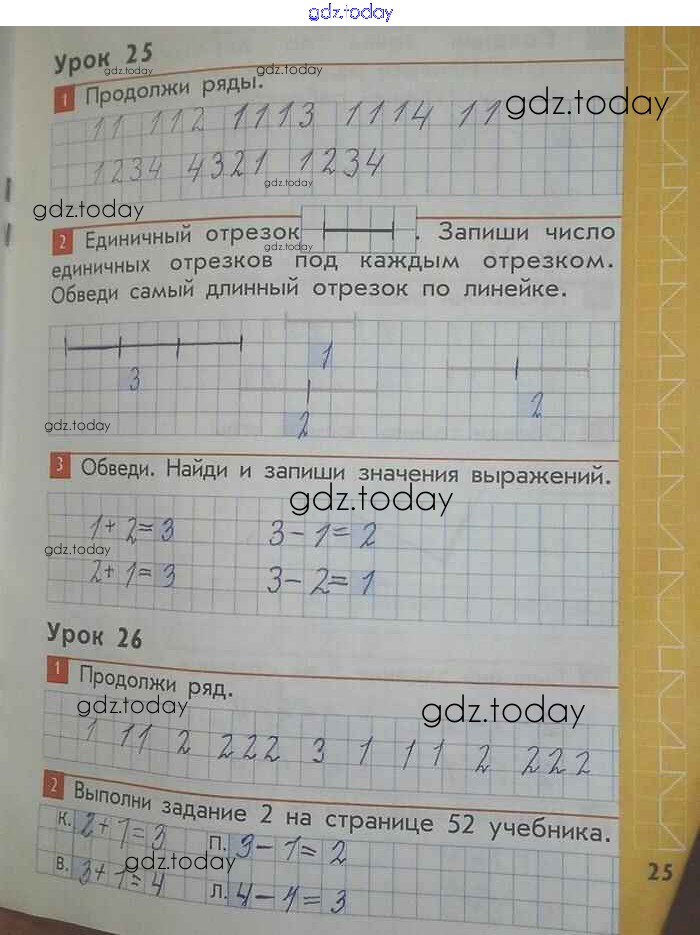 gdz.today
Урок 25
gdz.today gdz.today
1 Продолжи ряды.
11 112 1113 1114 11 gdz.today
1234 4321 1234
gdz.today
gdz.today
2 Единичный отрезок . Запиши число
gdz.today
единичных отрезков под каждым отрезком.
Обведи самый длинный отрезок по линейке.
1
3
2
2
gdz.today
3 Обведи. Найди и запиши значения выражений.
gdz.today
1+2=3 3-1=2
gdz.today
2+1=3 3-2=1
Урок 26
1 Продолжи ряд.
gdz.today gdz.today
1 11 2 222 3 1 11 2 222
2 Выполни задание 2 на странице 52 учебника.
К. 2+1=3 П. 3-1=2
gdz.today
В. 3+1=4 Л. 4-1=3
25